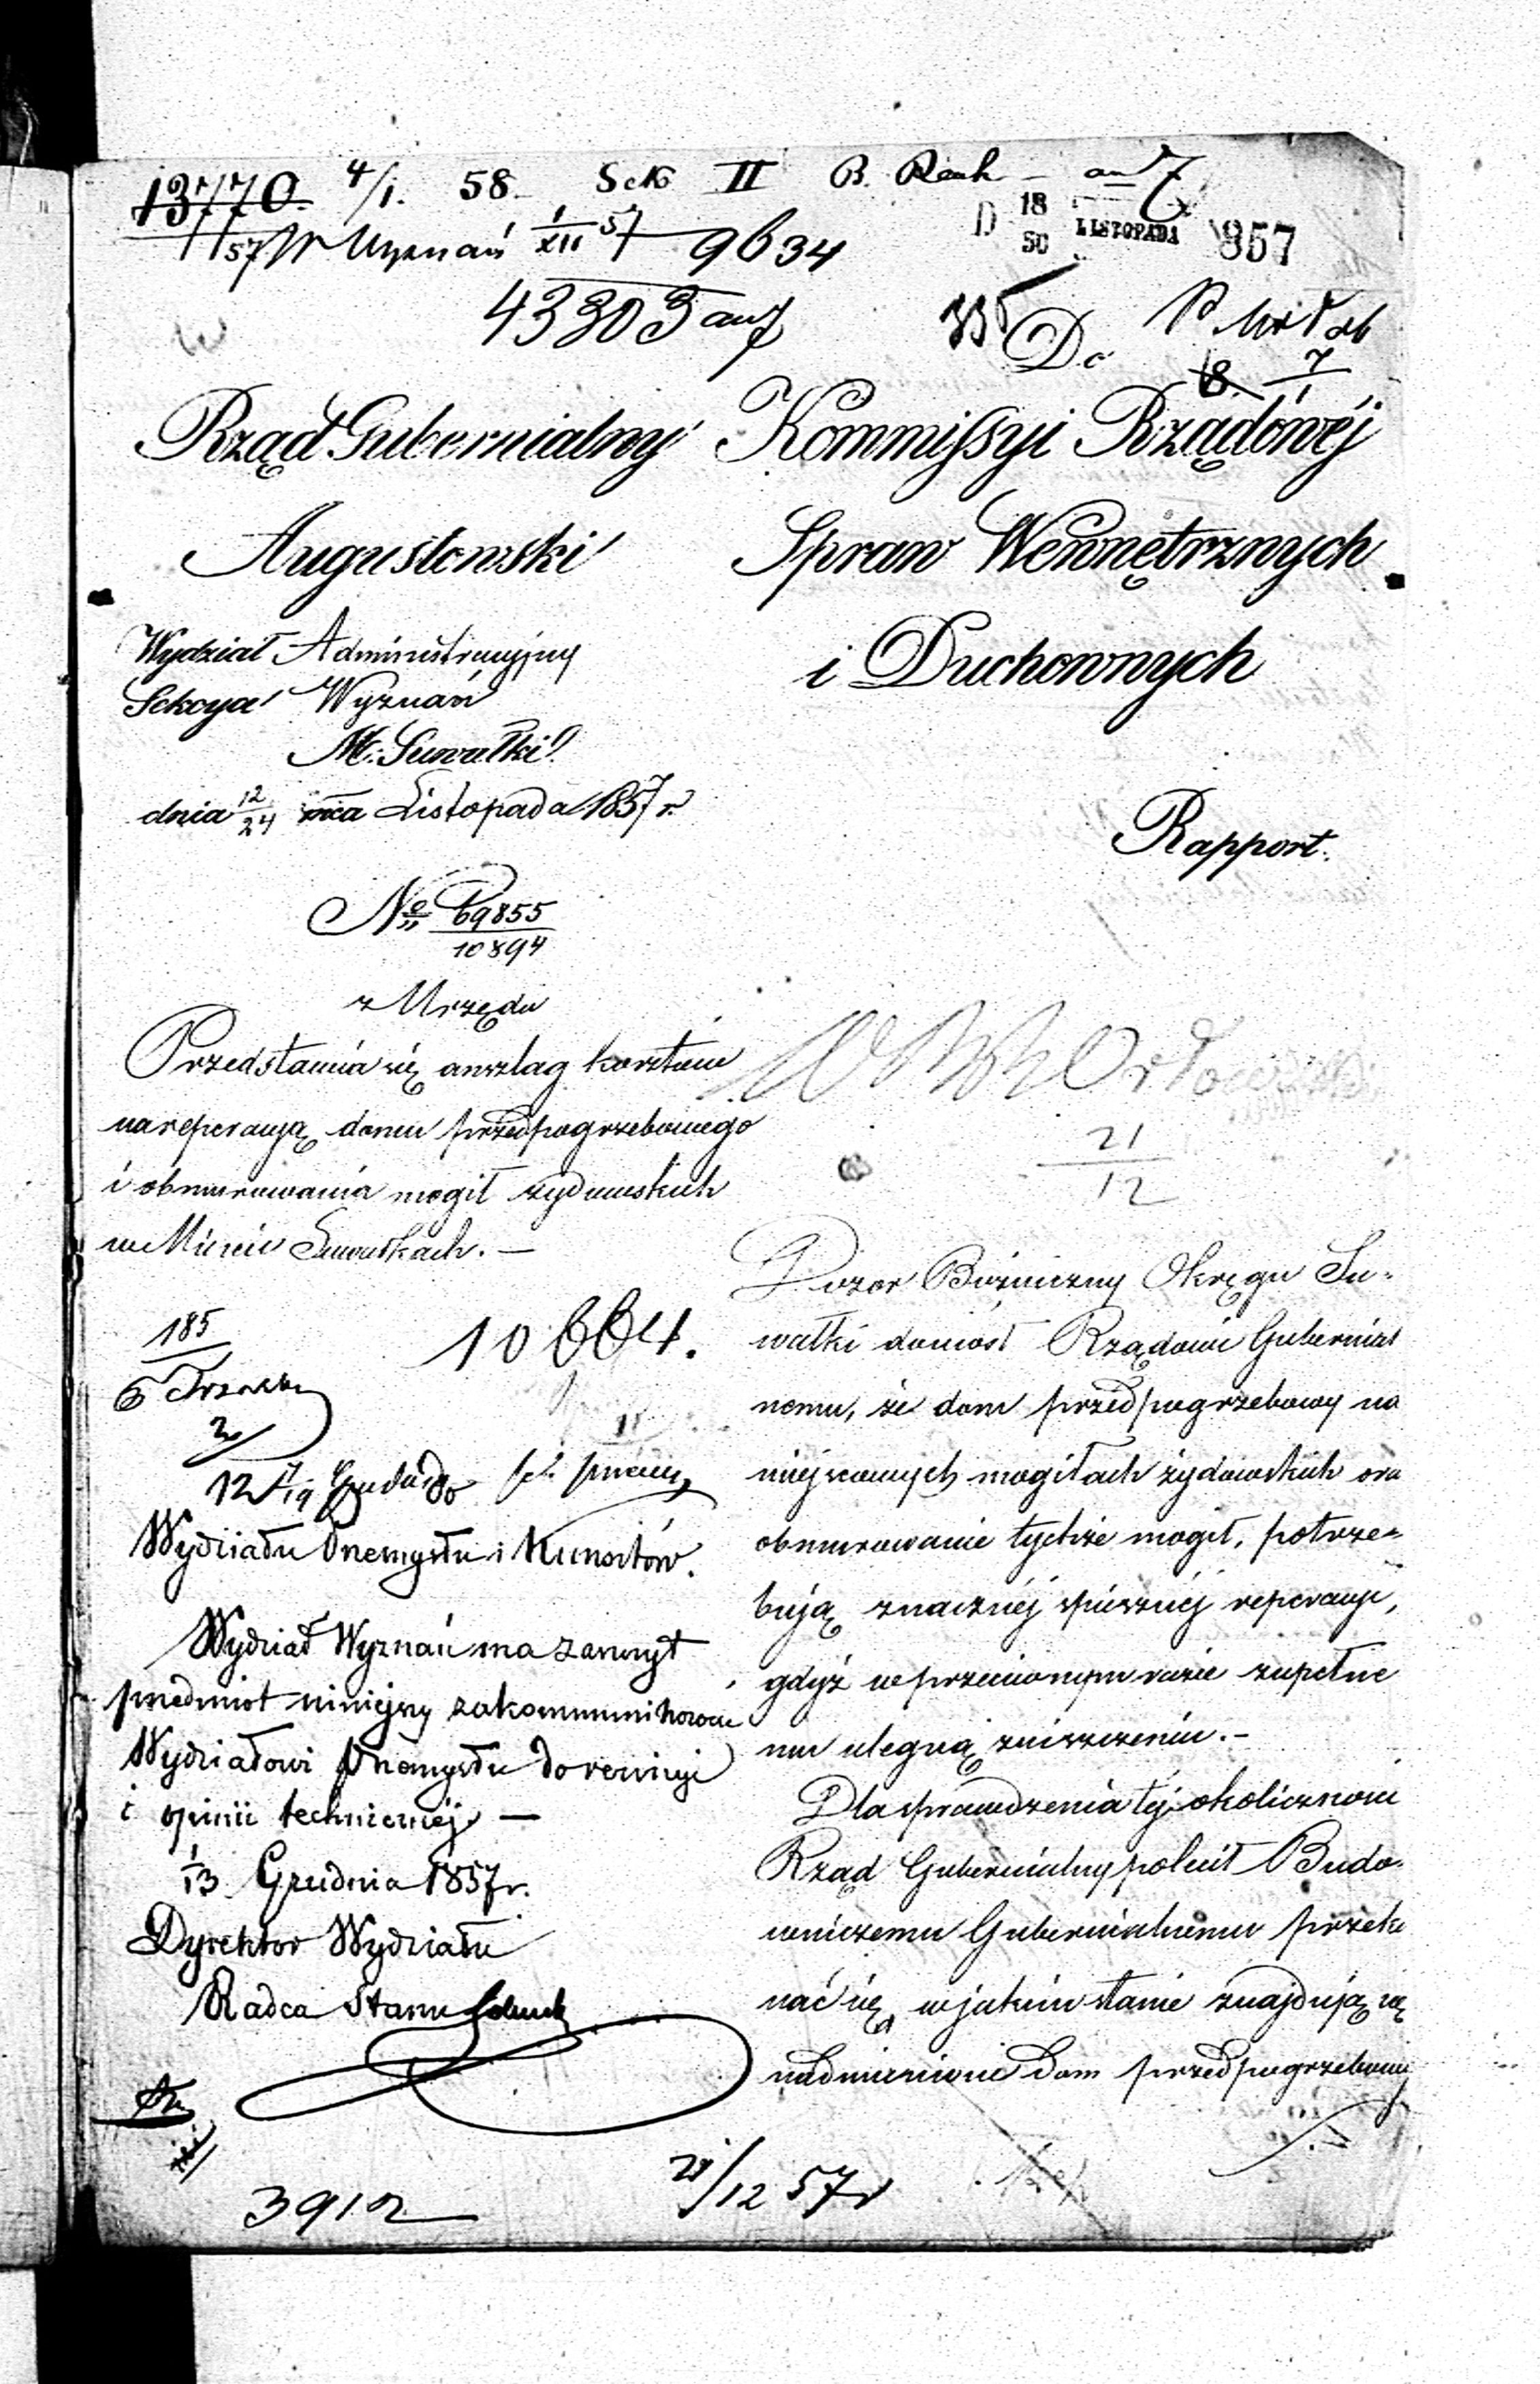 13770. 4/1. 58. Sek II B. Rach
57 W Wyznań 1/XII 57 9634
D 18/30 LISTOPADA 1857
43303
Do
8. 7/1
Rząd Gubernialny
Augustowski
Wydział Administracyjny
Sekcya Wyznań
M. Suwałki
dnia 12/24 mca Listopada 1857 r.
No 69855/10894
z Urzędu
Przedstawia się anszlag kosztów
na reperacyą domu przedpogrzebowego
i obmurowania mogił żydowskich
w Mieście Suwałkach. —
10664.
185
12 7/19 Grudnia do
Wydziału Przemysłu i Kunsztów.
Wydział Wyznań ma zaszczyt
przedmiot niniejszy zakommunikować
Wydziałowi Przemysłu do rewizyi
i opinii technicznéj. —
1/13 Grudnia 1857 r.
Dyrektor Wydziału
Radca Stanu
3912
Kommissyi Rządowéj
Spraw Wewnętrznych
i Duchownych
Rapport.
21/12
Dozor Bóżniczny Okręgu Su-
wałki doniosł Rządowi Gubernial
nemu, że dom przedpogrzebowy na
miejscowych mogiłach żydowskich ora
obmurowanie tychże mogił, potrze-
bują znacznéj spiesznéj reperacyi,
gdyż w przeciwnym razie zupełne
mu ulegną zniszczeniu. —
Dla sprawdzenia téj okoliczności
Rząd Gubernialny polecił Budo-
wniczemu Gubernialnemu przeko
nać się, w jakim stanie znajdują się
nadmienione Dom przedpogrzebowy
21/12 57 r